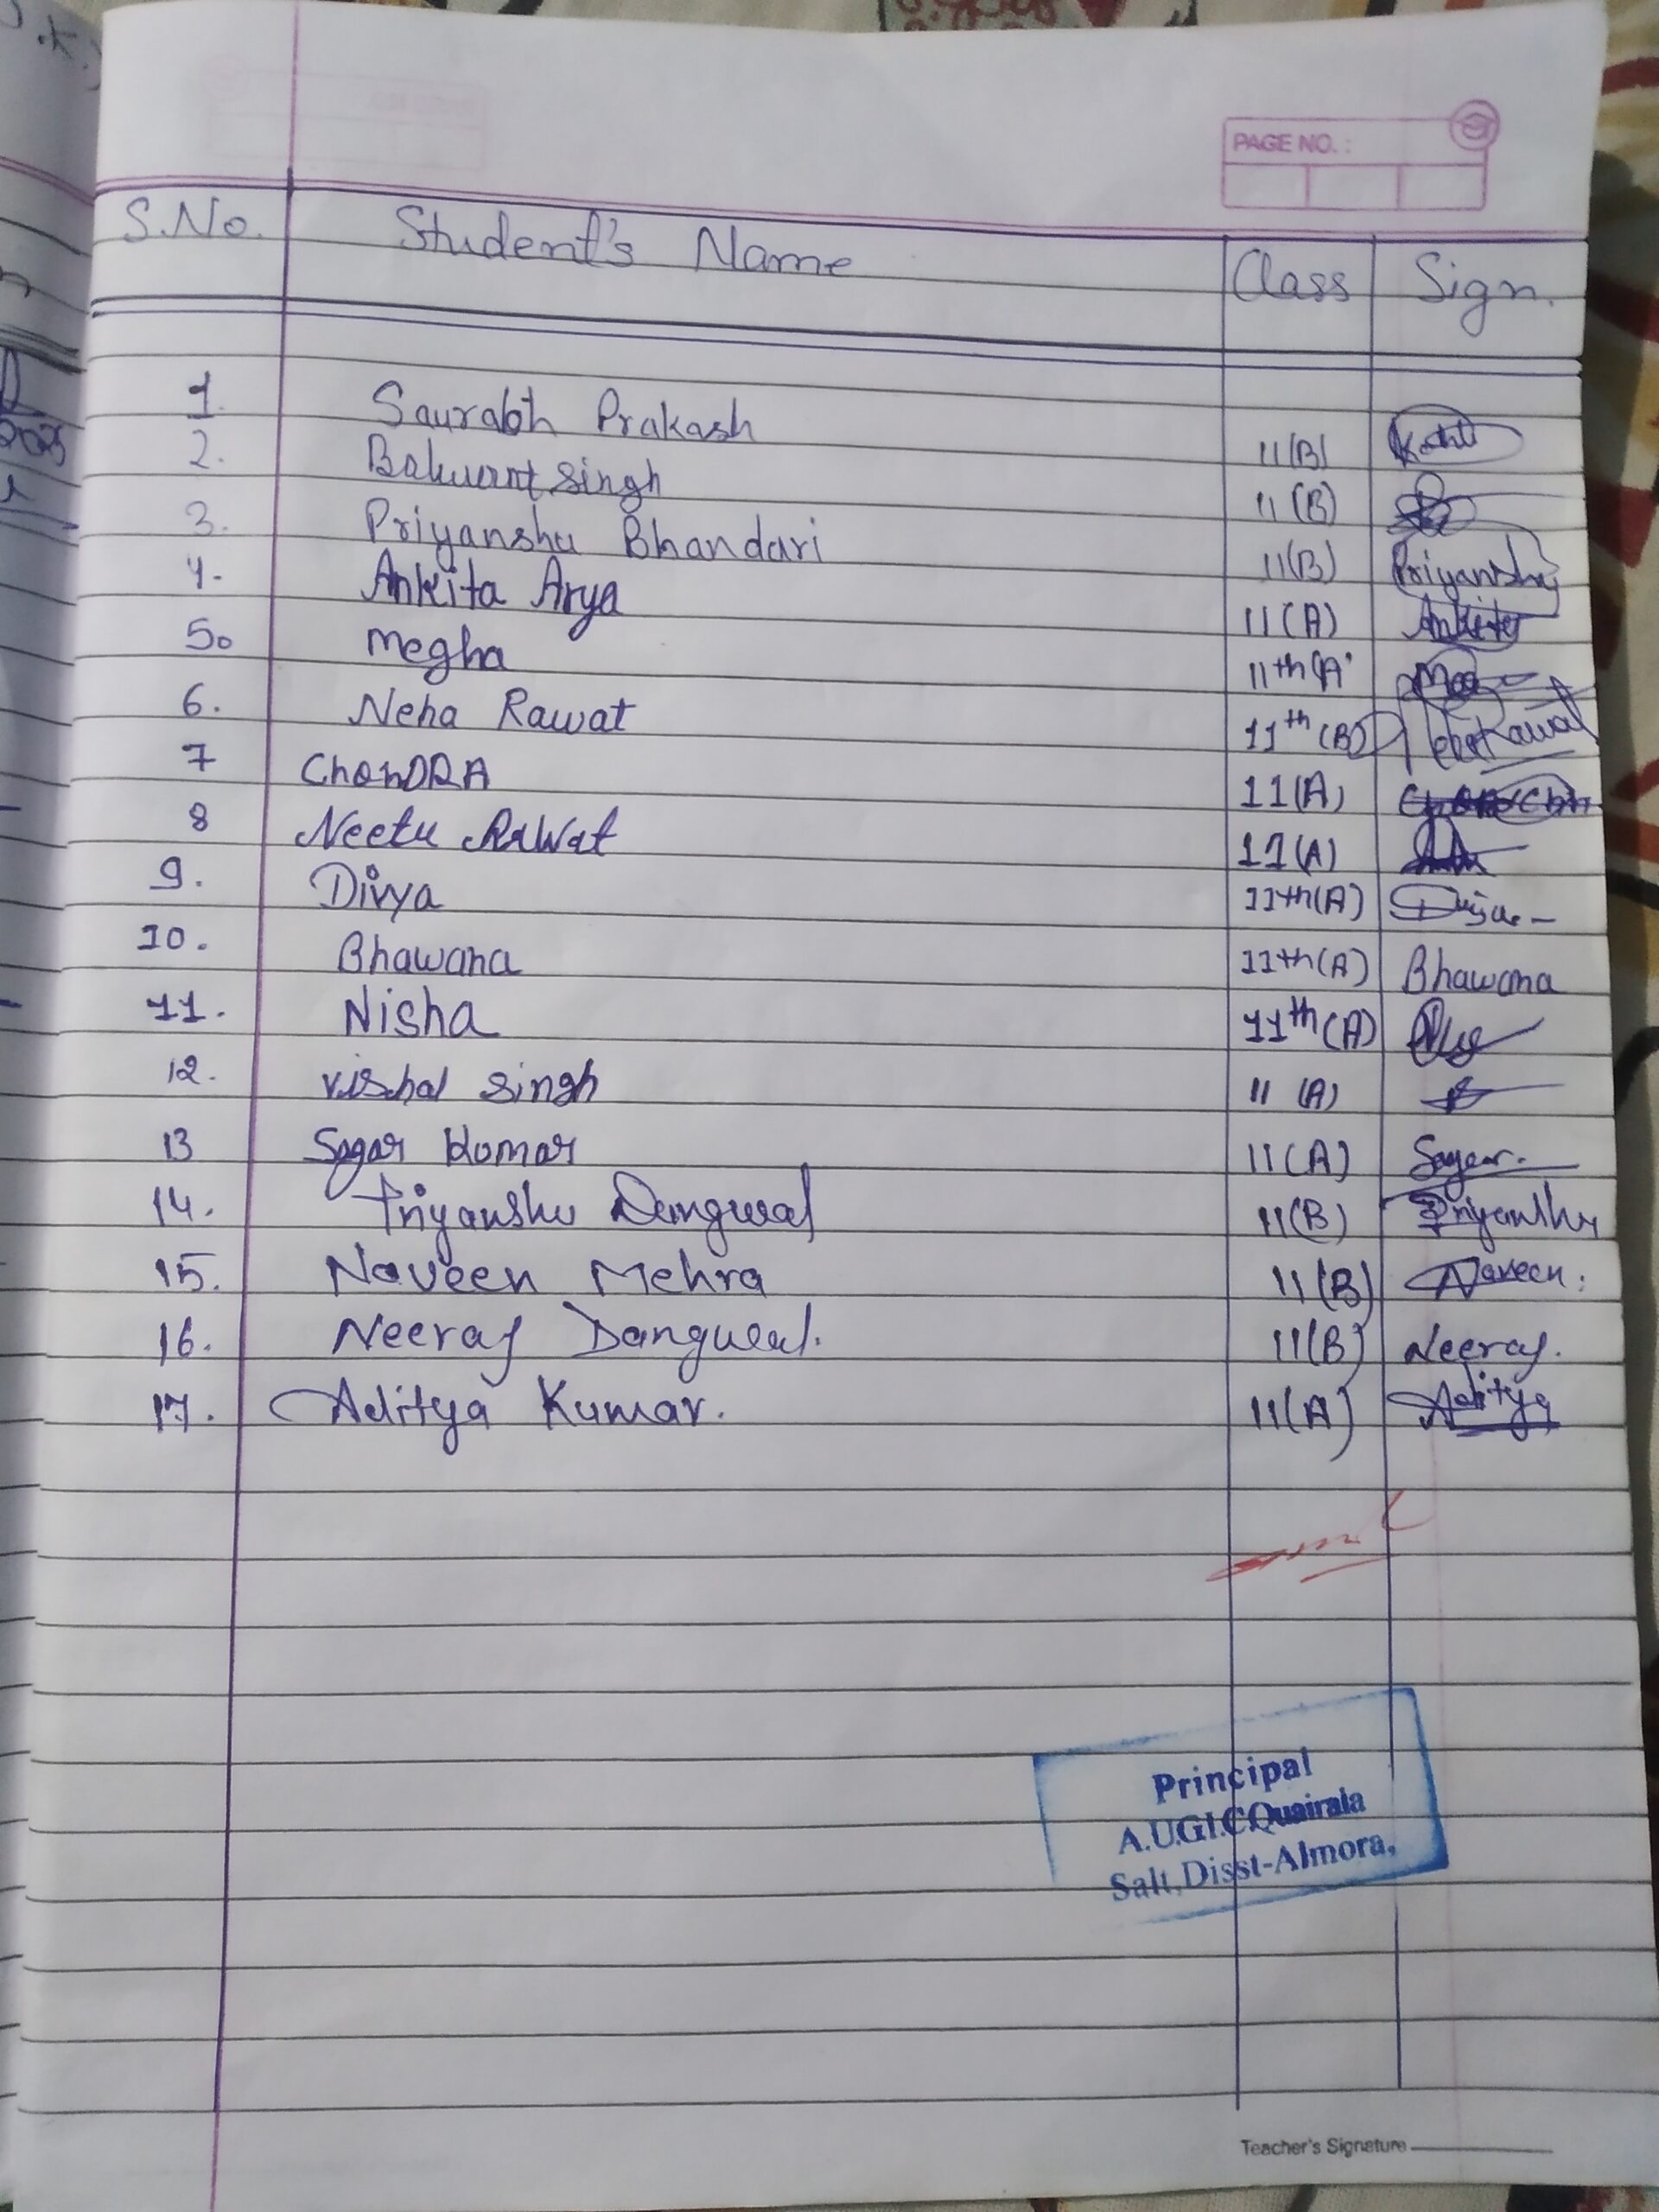 PAGE NO. :
S.No. Student's Name Class Sign.
1. Saurabh Prakash 11(B)
2. Balwant Singh 11(B)
3. Priyanshu Bhandari 11(B) Priyanshu
4. Ankita Arya 11(A) Ankita
5. Megha 11th(A)
6. Neha Rawat 11th(B) Neha Rawat
7 ChanDRA 11(A)
8 Neetu RaWat 11(A)
9. Divya 11th(A)
10. Bhawana 11th(A) Bhawana
11. Nisha 11th(A)
12. Vishal Singh 11 (A)
13 Sagar Kumar 11(A) Sagar.
14. Priyanshu Dangwal 11(B) Priyanshu
15. Naveen Mehra 11(B) Naveen.
16. Neeraj Dangwal. 11(B) Neeraj.
17. Aditya Kumar. 11(A) Aditya
Principal
A.U.G.I.C Quairala
Salt, Disst-Almora,
Teacher's Signature